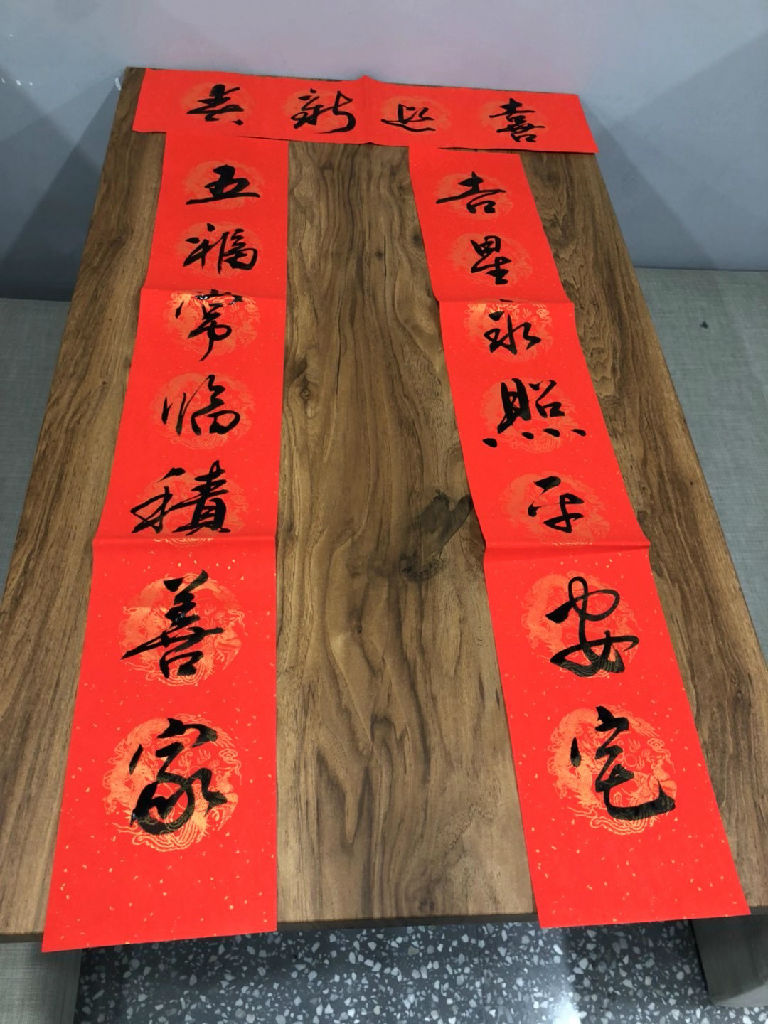 喜迎新春
吉星永照平安宅
五福常臨積善家